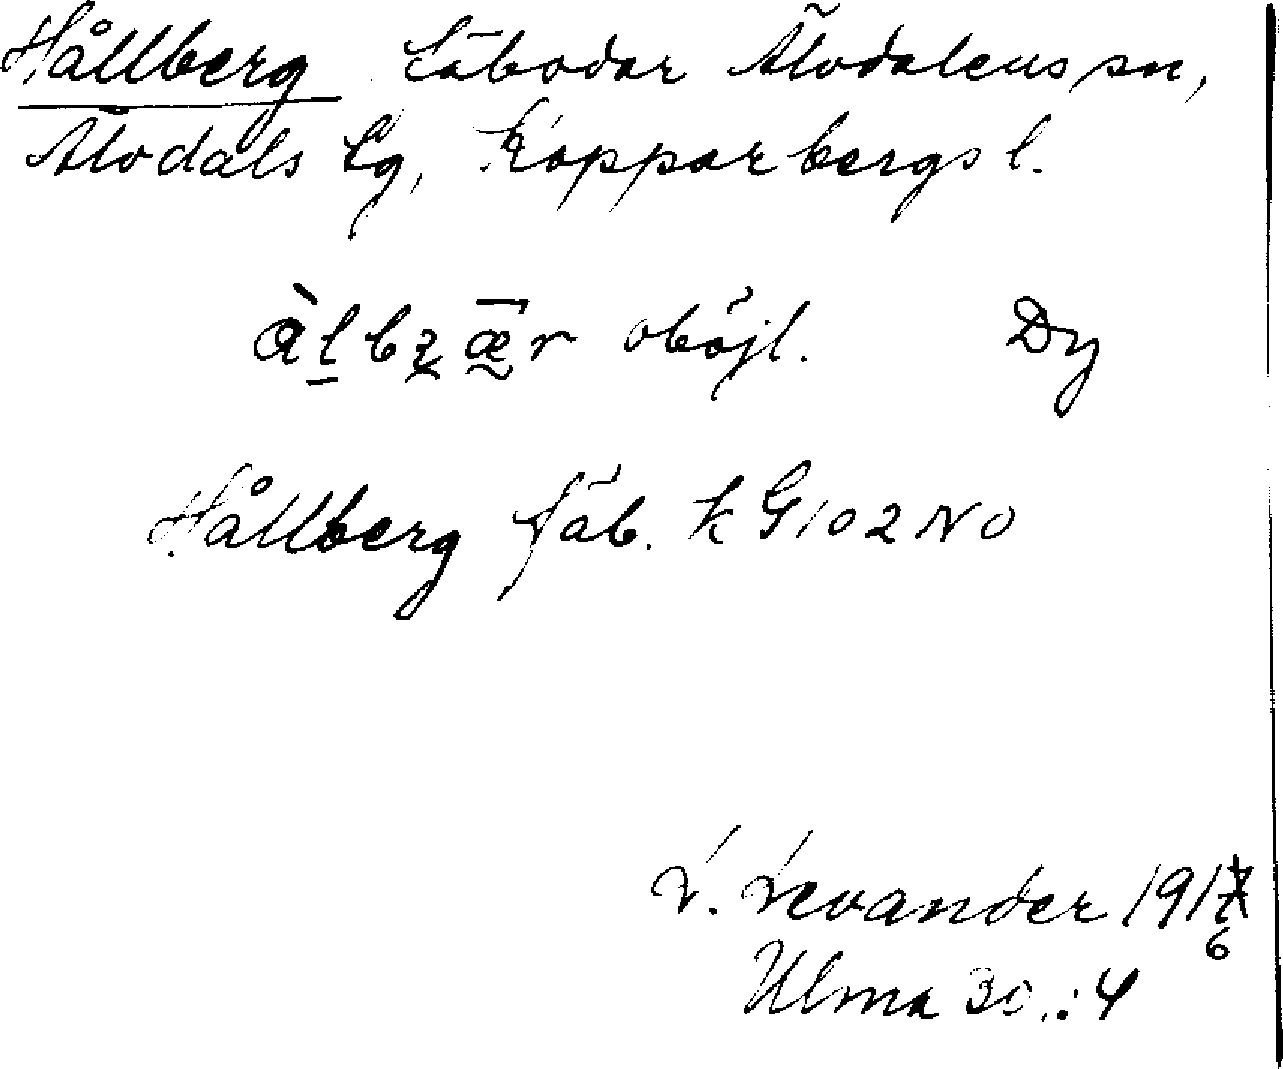 Hållberg fäbodar Älvdalens sn,
Älvdals tg, Kopparbergs l.
obøjl. Dy
Hållberg fäb. k G 102 NO
L. Levander 191
6
Ulma 30.:4